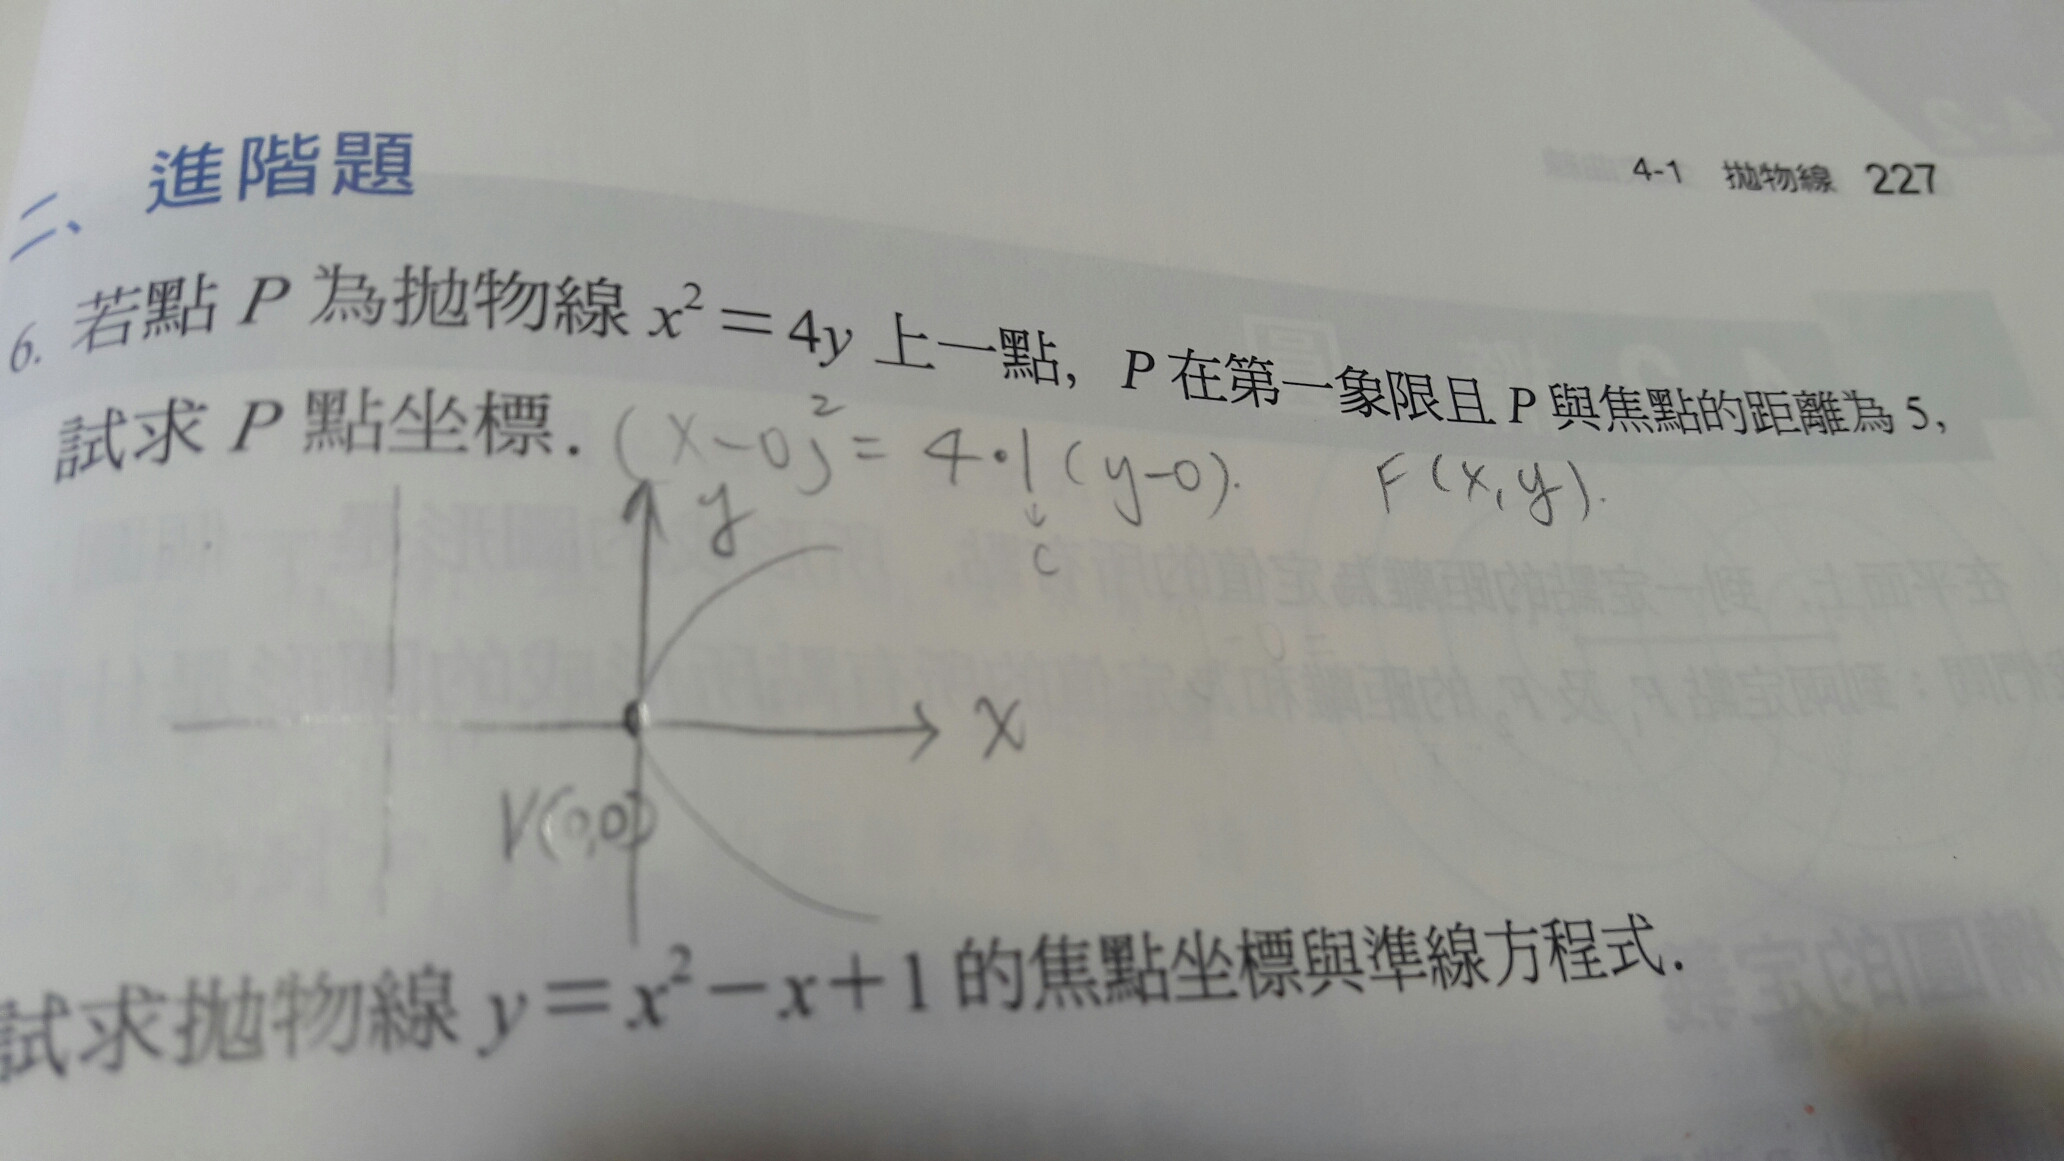 4-1 拋物線 227
二、進階題
6. 若點 P 為拋物線 x² = 4y 上一點，P 在第一象限且 P 與焦點的距離為 5，
試求 P 點坐標．
(x-0)² = 4·1(y-0).
F(x,y).
c
y
x
V(0,0)
試求拋物線 y = x² - x + 1 的焦點坐標與準線方程式．